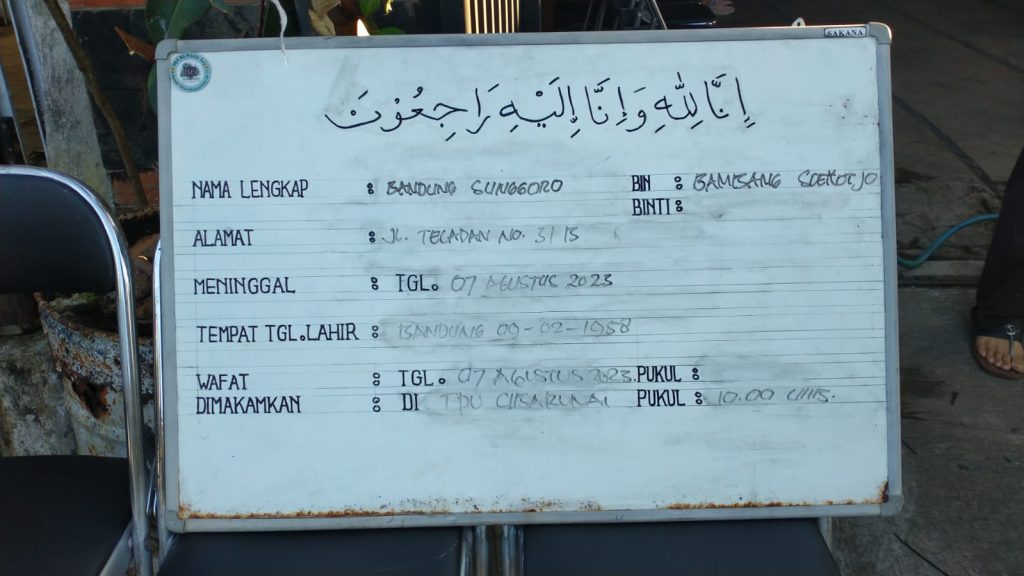 SAKANA
اِنَّا لِلّٰهِ وَاِنَّا اِلَيْهِ رَاجِعُوْنَ
NAMA LENGKAP : BANDUNG SUNGGORO BIN : BAMBANG SOEKOTJO
BINTI :
ALAMAT : JL. TELADAN NO. 31/15
MENINGGAL : TGL. 07 AGUSTUS 2023
TEMPAT TGL. LAHIR : BANDUNG 09-02-1958
WAFAT : TGL. 07 AGUSTUS 2023. PUKUL :
DIMAKAMKAN : DI TPU PUKUL : 10.00 WIB.